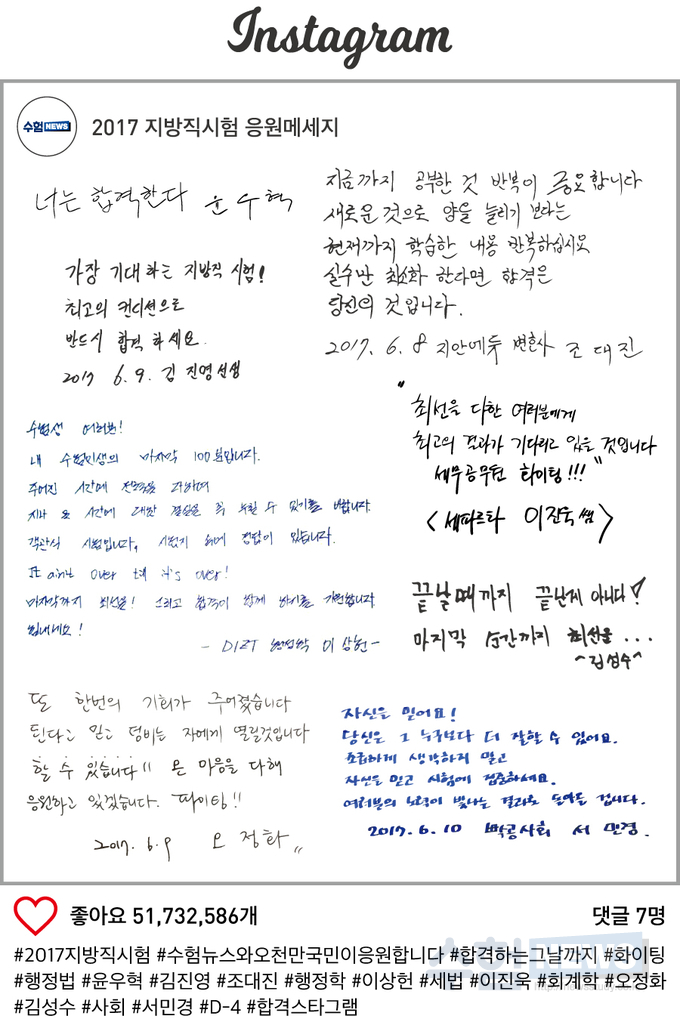 Instagram
수험NEWS
2017 지방직시험 응원메세지
너는 합격한다 윤우혁
가장 기대하는 지방직 시험!
최고의 컨디션으로
반드시 합격 하세요.
2017 6.9. 김진영선생
지금까지 공부한 것 반복이 중요합니다
새로운 것으로 양을 늘리기 보다는
현재까지 학습한 내용 반복하십시오
실수만 최소화 한다면 합격은
당신의 것입니다.
2017. 6. 8 지안에듀 변호사 조대진
"최선을 다한 여러분에게
최고의 결과가 기다리고 있을 것입니다
세무공무원 화이팅!!!"
<세파르타 이진욱쌤>
수험생 여러분!
내 수험인생의 마지막 100분입니다.
주어진 시간에 전력을 다하여
시험입니다. 정답이 있습니다.
It ain't over till it's over!
마지막까지 최선을! 그리고 합격이 함께 하시기를 기원합니다
힘내세요!
이상헌-
끝날때까지 끝난게 아니다!
마지막 순간까지 최선을...
^김성수^
또 한번의 기회가 주어졌습니다
된다고 믿고 덤비는 자에게 열릴것입니다
할 수 있습니다!! 온 마음을 다해
응원하고 있겠습니다. 파이팅!!
2017. 6. 9 오정화
자신을 믿어요!
당신은 그 누구보다 더 잘할 수 있어요.
조급하게 생각하지 말고
자신을 믿고 시험에 집중하세요.
여러분의 노력이 빛나는 결과로 돌아올 겁니다.
2017. 6. 10 박공사회 서민경.
좋아요 51,732,586개
댓글 7명
#2017지방직시험 #수험뉴스와오천만국민이응원합니다 #합격하는그날까지 #화이팅
#행정법 #윤우혁 #김진영 #조대진 #행정학 #이상헌 #세법 #이진욱 #회계학 #오정화
#김성수 #사회 #서민경 #D-4 #합격스타그램
수험NEWS